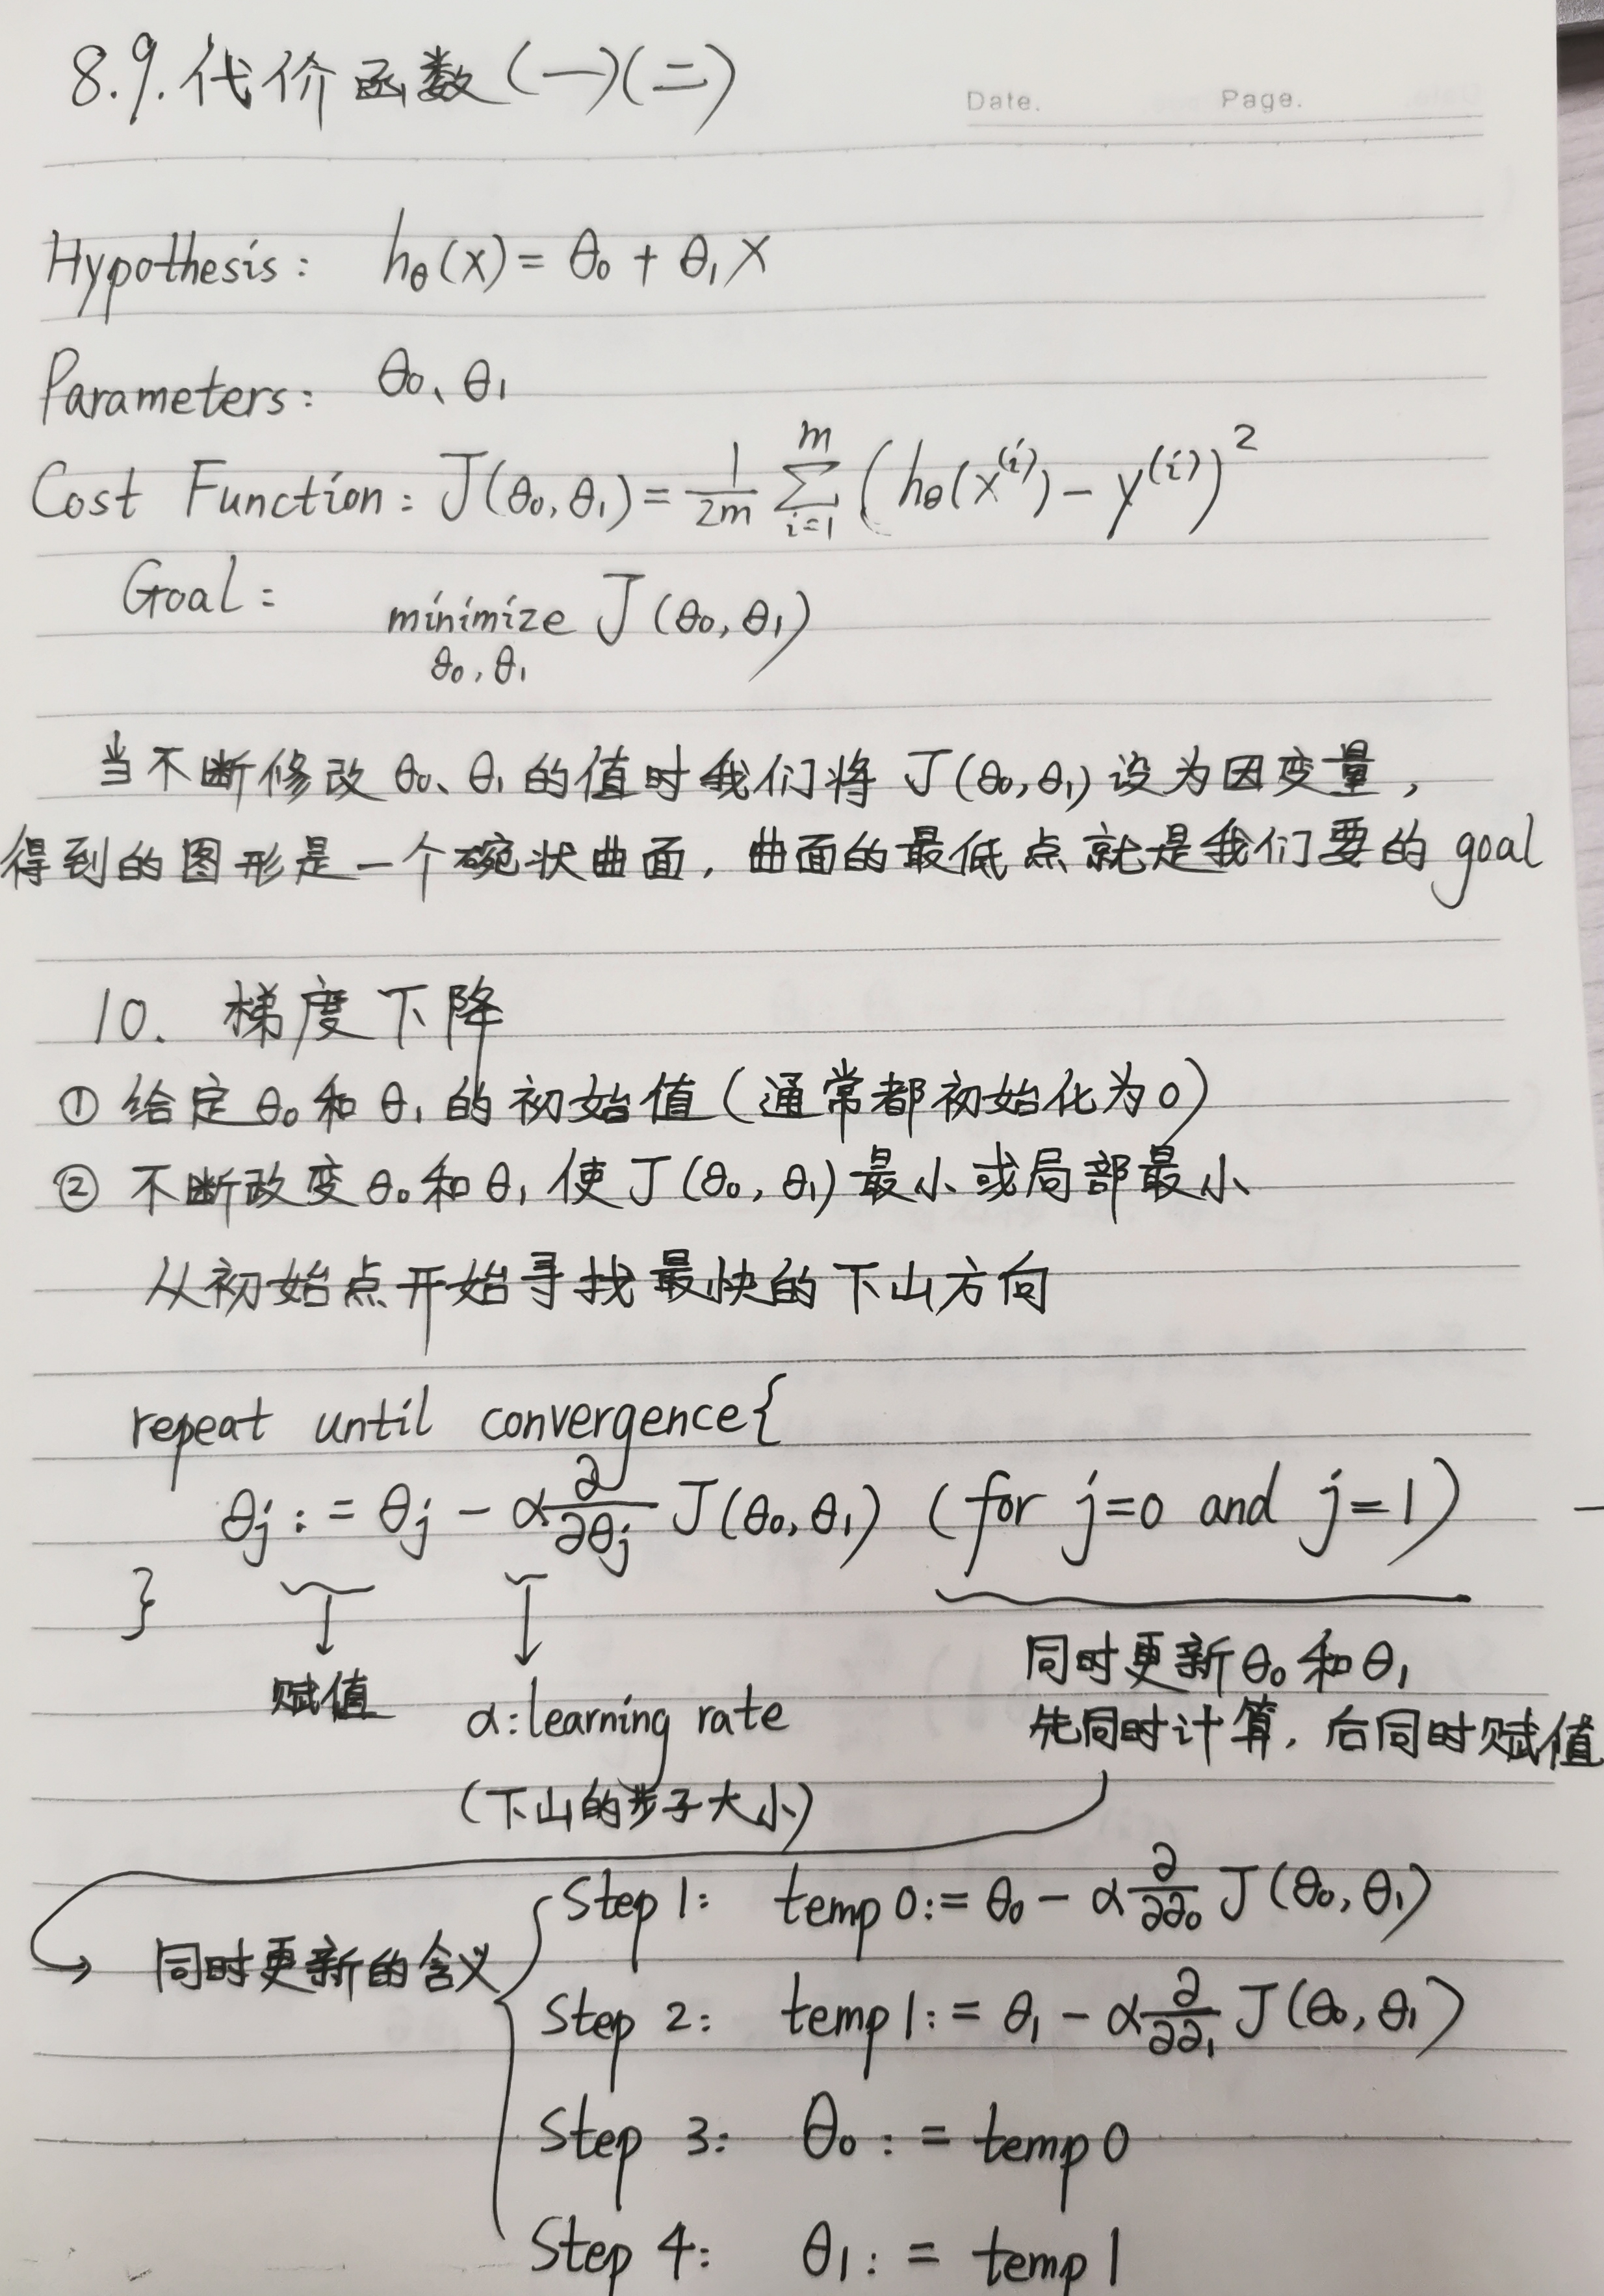 8.9.代价函数(一)(二)
Date. Page.
Hypothesis: hθ(x) = θ₀ + θ₁x
Parameters: θ₀、θ₁
Cost Function: J(θ₀,θ₁) = 1/2m ∑ᵢ₌₁ᵐ (hθ(x⁽ⁱ⁾) - y⁽ⁱ⁾)²
Goal: minimize J(θ₀,θ₁)
θ₀,θ₁
当不断修改θ₀、θ₁的值时我们将J(θ₀,θ₁)设为因变量,
得到的图形是一个碗状曲面,曲面的最低点就是我们要的goal
10. 梯度下降
① 给定θ₀和θ₁的初始值(通常都初始化为0)
② 不断改变θ₀和θ₁使J(θ₀,θ₁)最小或局部最小
从初始点开始寻找最快的下山方向
repeat until convergence{
θj := θj - α ∂/∂θj J(θ₀,θ₁) (for j=0 and j=1)
}
赋值
α:learning rate
(下山的步子大小)
同时更新θ₀和θ₁
先同时计算,后同时赋值
同时更新的含义
Step 1: temp0:= θ₀ - α ∂/∂∂₀ J(θ₀,θ₁)
Step 2: temp1:= θ₁ - α ∂/∂∂₁ J(θ₀,θ₁)
Step 3: θ₀:= temp0
Step 4: θ₁:= temp1